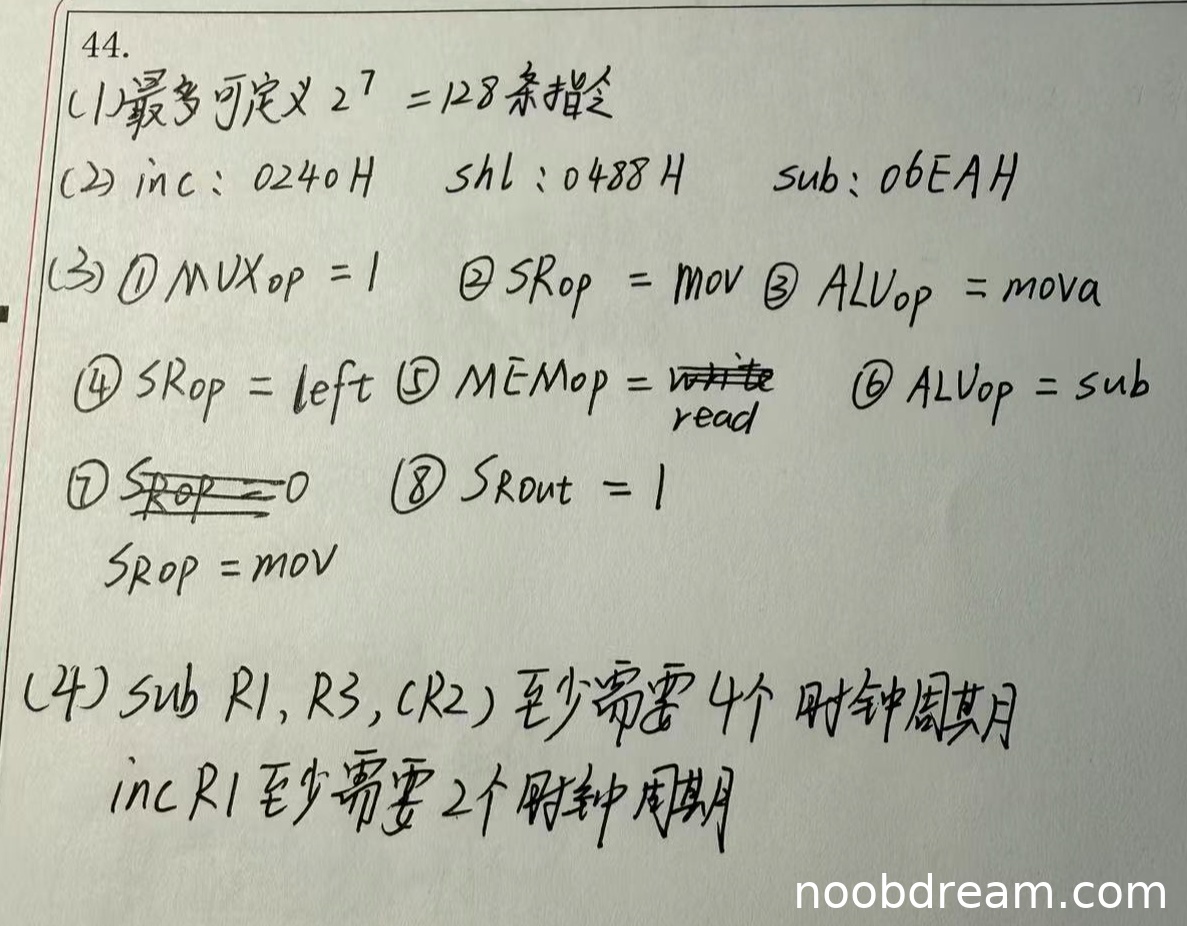 44.
(1)最多可定义 2⁷ =128条指令
(2) inc: 0240H shl:0488H sub:06EAH
(3) ① MUXop =1 ② SRop = mov ③ ALUop = mova
④ SRop = left ⑤ MEMop = write read ⑥ ALUop = sub
⑦ SRop = 0 ⑧ SRout = 1
SRop = mov
(4) sub R1, R3, (R2) 至少需要4个时钟周期
inc R1至少需要2个时钟周期
noobdream.com